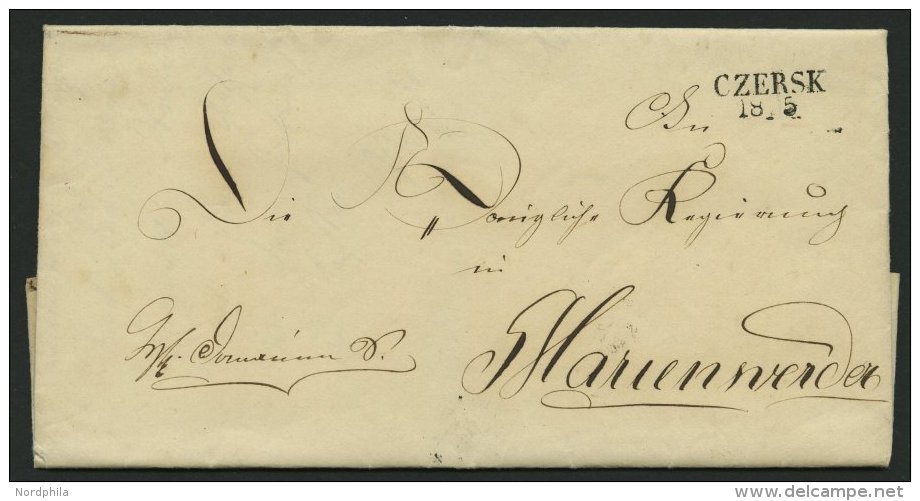 CZERSK
18 5
An
Die Königliche Regierung
in
Domainen S.
Marienwerder
Nordphila
www.delcampe.net